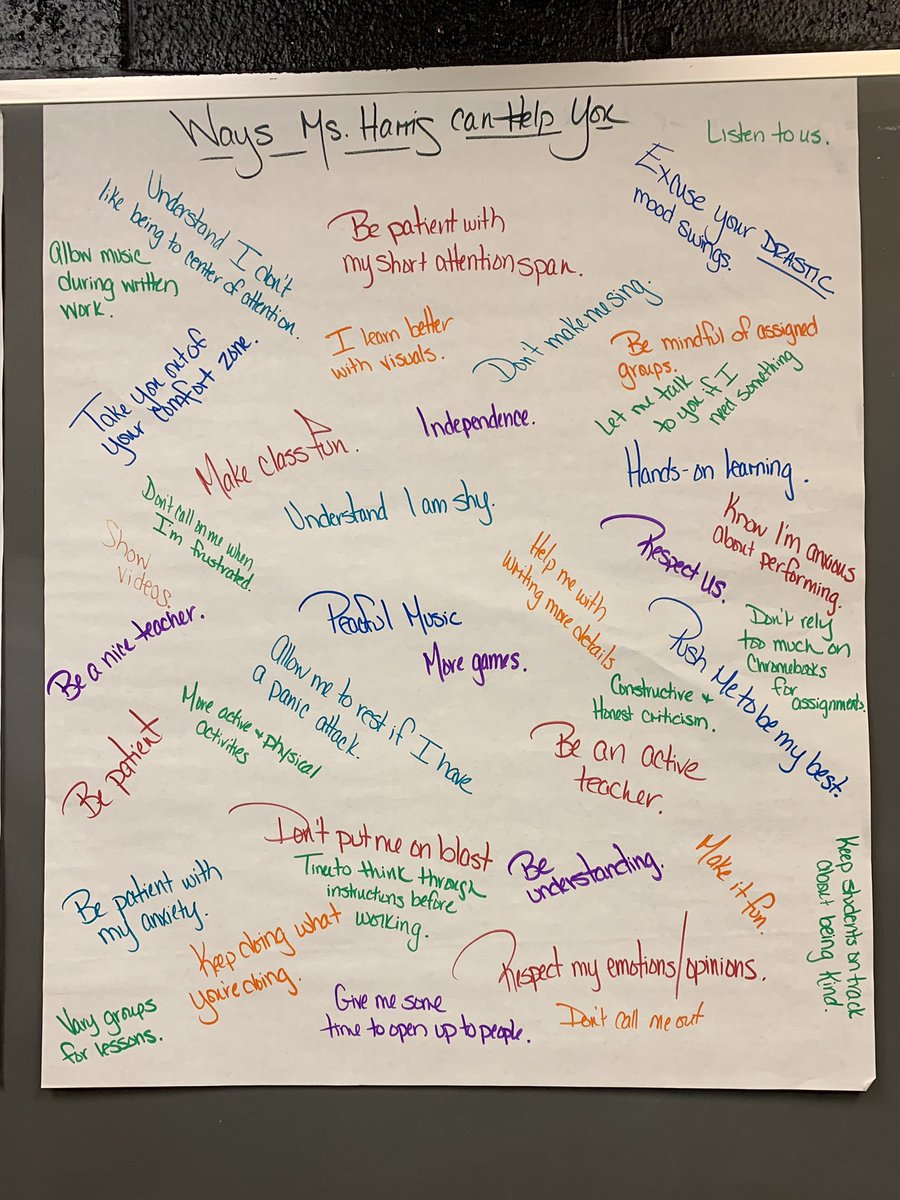 Ways Ms. Harris can Help You
Listen to us.
Understand I don't
like being to center of attention.
Allow music
during written
work.
Be patient with
my short attention span.
Excuse your DRASTIC
mood swings.
I learn better
with visuals.
Don't make me sing.
Be mindful of assigned
groups.
Let me talk
to you if I
need something
Take you out of
your comfort zone.
Make class fun.
Independence.
Hands-on learning.
Don't call on me when
I'm frustrated.
Understand I am shy.
Know I'm anxious
about performing.
Show
videos.
Help me with
writing more details
Respect us.
Be a nice teacher.
Peaceful Music
More games.
Push Me to be my best.
Don't rely
too much on
Chromebooks
for
assignments.
Allow me to rest if I have
a panic attack.
Constructive &
Honest criticism.
More active & physical
activities
Be patient
Be an active
teacher.
Don't put me on blast
Time to think through
instructions before
working.
Be
understanding.
Make it fun.
Keep students on track
about being kind.
Be patient with
my anxiety.
Keep doing what
you're doing.
Respect my emotions/opinions.
Vary groups
for lessons.
Give me some
time to open up to people.
Don't call me out